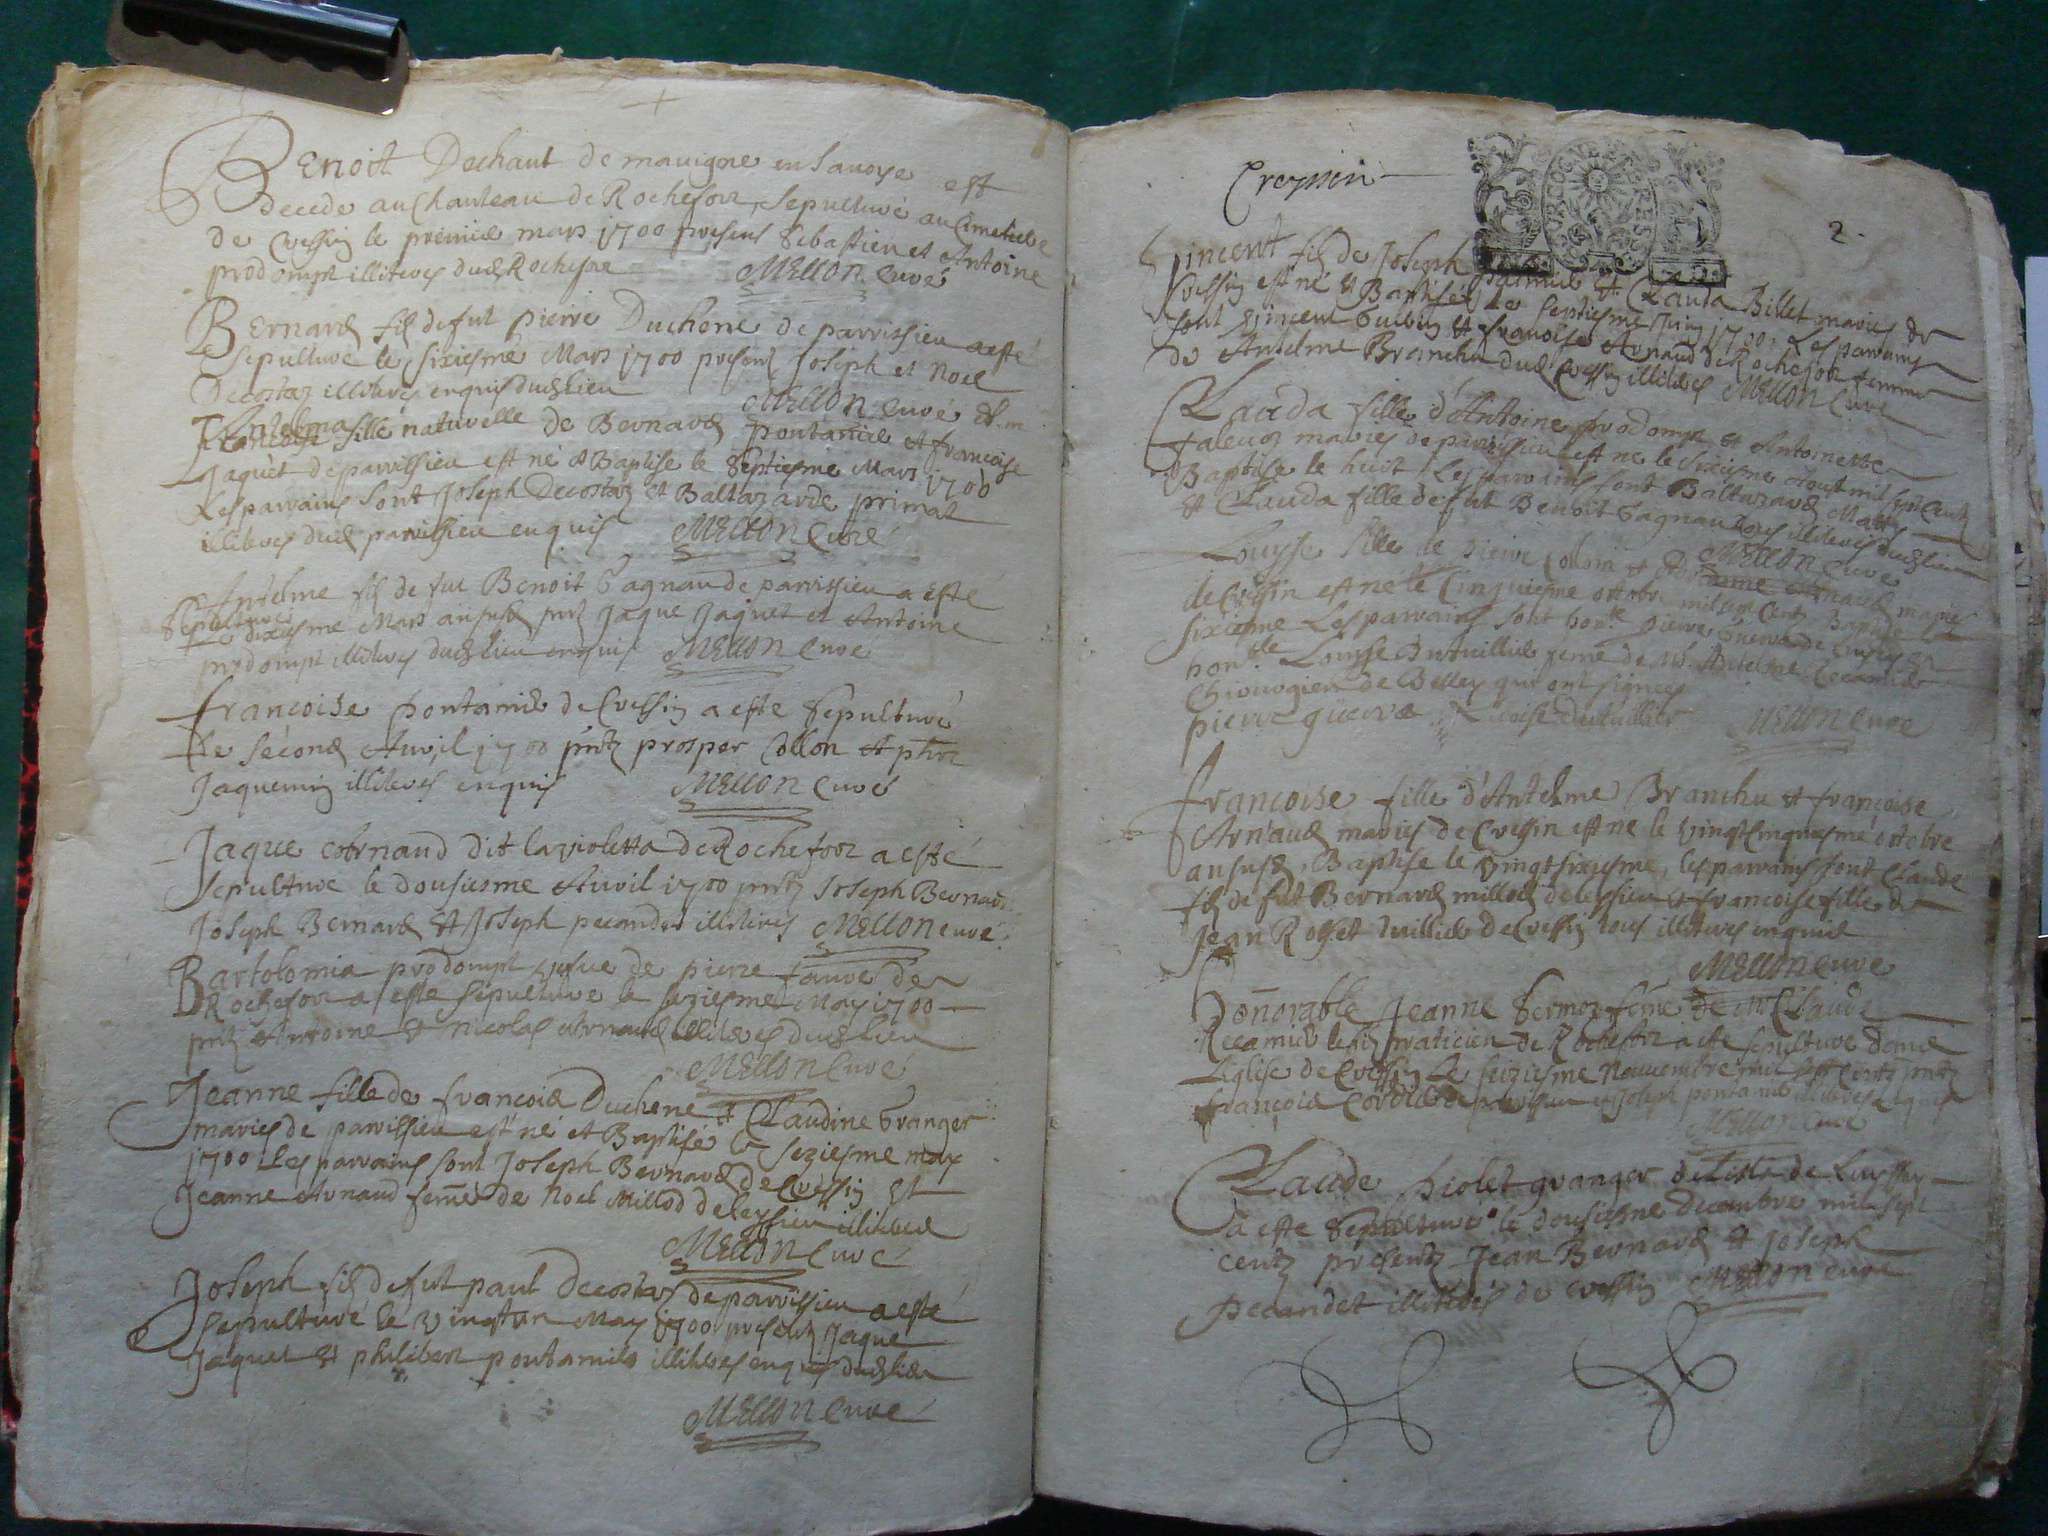 Benoit Dechaut de mavigne en Savoye est
decede au Chanteau de Rochefort, sepulturé au Cimetiere
de Cressin le premier mars 1700 presens Sebastien et Antoine
prodompt illiteres dud Rochefort MELLON Curé
Bernard fils de fut pierre Duchene de parvissieu a esté
sepulturé le sixiesme Mars 1700 presens Joseph et Noel
Decostaz illiteres enquis dud lieu MELLON Curé
Antelma fille naturelle de Bernard pontanier et françoise
Jaquet de parvissieu est né & Baptise le septiesme Mars 1700
Les parrains sont Joseph Decostaz et Baltazarde primat
illiteres dud parvissieu enquis MELLON Curé
Antelme fils de fut Benoit Gagnau de parvissieu a esté
sepulturé dixiesme Mars an susd Jaque Jaquet et Antoine
prodompt illiteres dud lieu enquis MELLON Curé
françoise pontanier de Cressin a esté sepulturé
le second Avril 1700 prntz prosper Collon et
Jaquemin illiteres enquis MELLON Curé
Jaque Arnaud dit la violetta de Rochefort a esté
sepulturé le dousiesme Avril 1700 prntz Joseph Bernard
Joseph Bernard et Joseph pecandet illiteres MELLON curé
Bartolomia prodompt vefue de pierre faure de
Rochefort a esté sepulturé le seziesme May 1700
prntz Antoine et Nicolas Arnaud illiteres dud lieu
MELLON Curé
Jeanne fille de françois Duchene et Claudine Granger
maries de parvissieu est né et Baptisé le seziesme may
1700 Les parrains sont Joseph Bernard de Cressin et
Jeanne Arnaud femme de Noel Millod de leyssieu illiteres
MELLON Curé
Joseph fils de fut paul Decostaz de parvissieu a esté
sepulturé le vingt un May 1700 presens Jaque
Jaquet et philibert pontanier illiteres enquis dud lieu
MELLON Curé
Cressin
2
Vincent fils de Joseph et Clauda Billet maries de
Cressin est né & Baptisé le septiesme Juin 1700. Les parrains
sont Vincent et françoise Arnaud de Rochefort femme
de Antelme Branchu dud Cressin illiteres MELLON Curé
Clauda fille d'Antoine prodompt et Antoinette
maries de parvissieu est né le sixiesme Aoust mil sept Centz
Baptise le huict Les parrains sont Baltazard
et Clauda fille de fut Benoit Gagnau tous illiteres dud lieu
MELLON Curé
Louyse fille de pierre Collon et Arnaud maries
de Cressin est né le Cinquiesme octobre mil sept Centz Baptisé
sixiesme Les parrains sont honble pierre de Cressin et
honble Louyse femme de Mr Antelme Recamier
Chirurgien de Belley qui ont signes
pierre MELLON Curé
françoise fille d'Antelme Branchu et françoise
Arnaud maries de Cressin est né le vingt cinquiesme octobre
an susd, Baptise le vingt sixiesme, les parrains sont Claude
fils de fut Bernard millod de leyssieu et françoise fille de
Jean Roget de Cressin tous illiteres enquis
MELLON Curé
Honnorable Jeanne femme de Mr Claude
Recamier praticien de Rochefort a esté sepulturé dans
Leglise de Cressin Le seiziesme Nouvembre mil sept Centz prntz
françois Cordier de parvissieu et Joseph pontanier illiteres
MELLON Curé
Claude Violet granger de
a esté sepulturé le dousiesme decembre mil sept
centz presentz Jean Bernard et Joseph
Pecandet illiteres de Cressin MELLON Curé